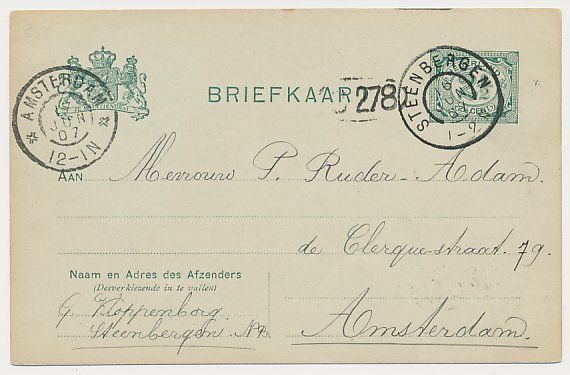 AMSTERDAM
JAN
07
12-1N
BRIEFKAART
278
STEENBERGEN
16
JAN
1-2
CENT
AAN Mevrouw P. Ruder-Adam.
de Clerque-straat 79.
Amsterdam.
Naam en Adres des Afzenders
(Desverkiezende in te vullen)
G. Kloppenborg.
Steenbergen N.B.